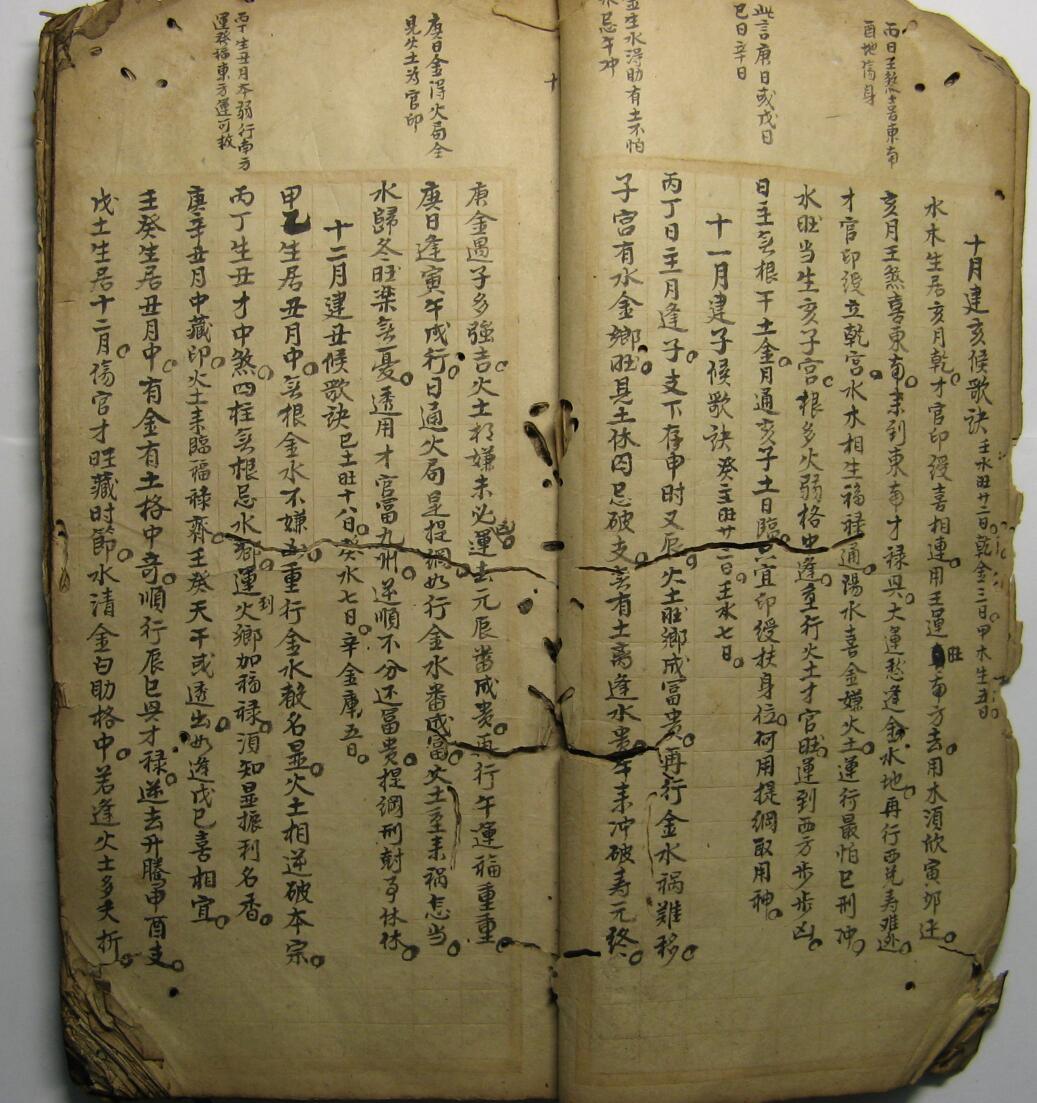 丙日壬煞喜東南
酉地傷身
此言庚日或戊日
巳日辛日
金生水得助有土不怕
水忌午冲
十月建亥候歌訣 壬水旺廿二日乾金三日甲木生五日
水木生居亥月乾才官印綬喜相連用壬運旺南方去用木須欣寅卯迁
亥月壬煞喜東南未到東南才禄具大運愁逢金水地再行西兌寿难
才官印綬立乾宮水木相生福禄通陽水喜金嫌火土運行最怕巳刑冲
水旺当生亥子宮根多火弱格中逢運行火土才官旺運到西方步步凶
日主無根干土金月通亥子土日臨宜印綬扶身位何用提綱取用神
十一月建子候歌訣 癸主旺廿三日壬水七日
丙丁日主月逢子支下存申时又辰火土旺鄉成富贵再行金水祸難移
子宮有水金鄉旺見土休囚忌破支有土离逢水贵午来冲破寿元终
十
庚日金得火局全
見火土为官印
丙丁生丑月本弱行南方
運發福東方運可救
庚金遇子多強吉火土相嫌未必運去元辰番成贵再行午運福重重
庚日逢寅午戌行日通火局是提綱如行金水番成富火土重来祸怎当
水歸冬旺楽無憂透用才官富九州逆順不分还富贵提綱刑尅事休休
十二月建丑候歌訣 巳土旺十八日癸水七日辛金庫五日
甲乙生居丑月中無根金水不嫌重行金水聲名显火土相逆破本宗
丙丁生丑才中煞四柱無根忌水鄉運到火鄉加福禄須知显振利名香
庚辛丑月中藏印火土来臨福禄齊壬癸天干或透出如逢戊巳喜相宜
壬癸生居丑月中有金有土格中奇順行辰巳具才禄逆去升騰申酉支
戊土生居十二月傷官才旺藏时節水清金白助格中若逢火土多夭折